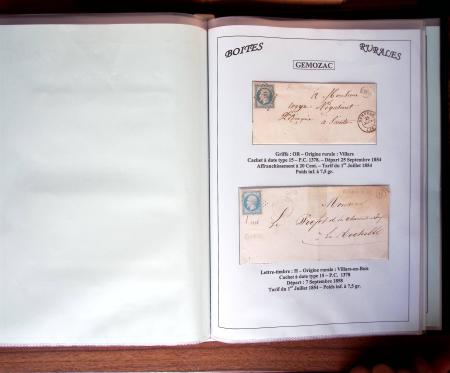 BOITES RURALES
GEMOZAC
A Monsieur
à Saintes
Griffe : OR – Origine rurale : Villars
Cachet à date type 15 – P.C. 1378. – Départ 25 Septembre 1854
Affranchissement à 20 Cent. – Tarif du 1er Juillet 1854
Poids inf. à 7,5 gr.
Monsieur
Le Préfet de la Charente Inf
à La Rochelle
Lettre-timbre : H – Origine rurale : Villars-en-Bois
Cachet à date type 15 – P.C. 1378
Départ : 7 Septembre 1858
Tarif du 1er Juillet 1854 – Poids inf. à 7,5 gr.